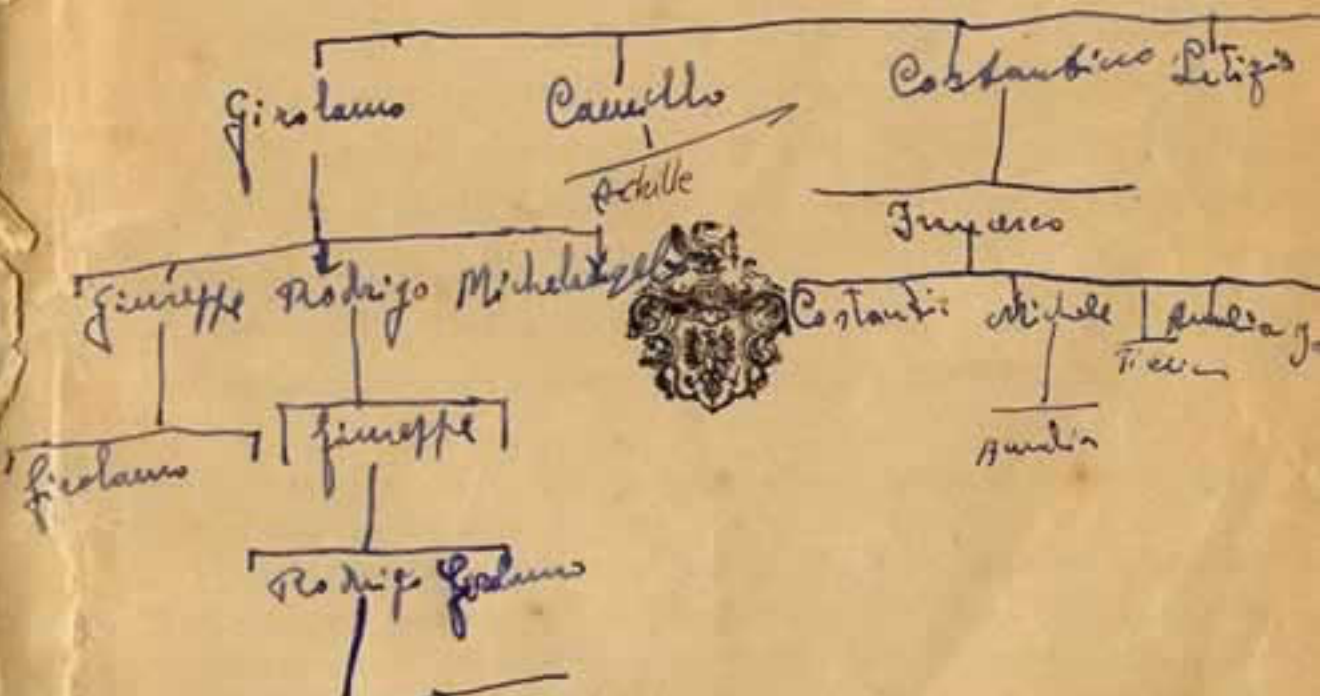 Girolamo Camillo Costantino Letizia
Achille
Francesco
Giuseppe Rodrigo Michelangelo
Costantin Michele Amalia
Girolamo Giuseppe
Amalia
Rodrigo Girolamo